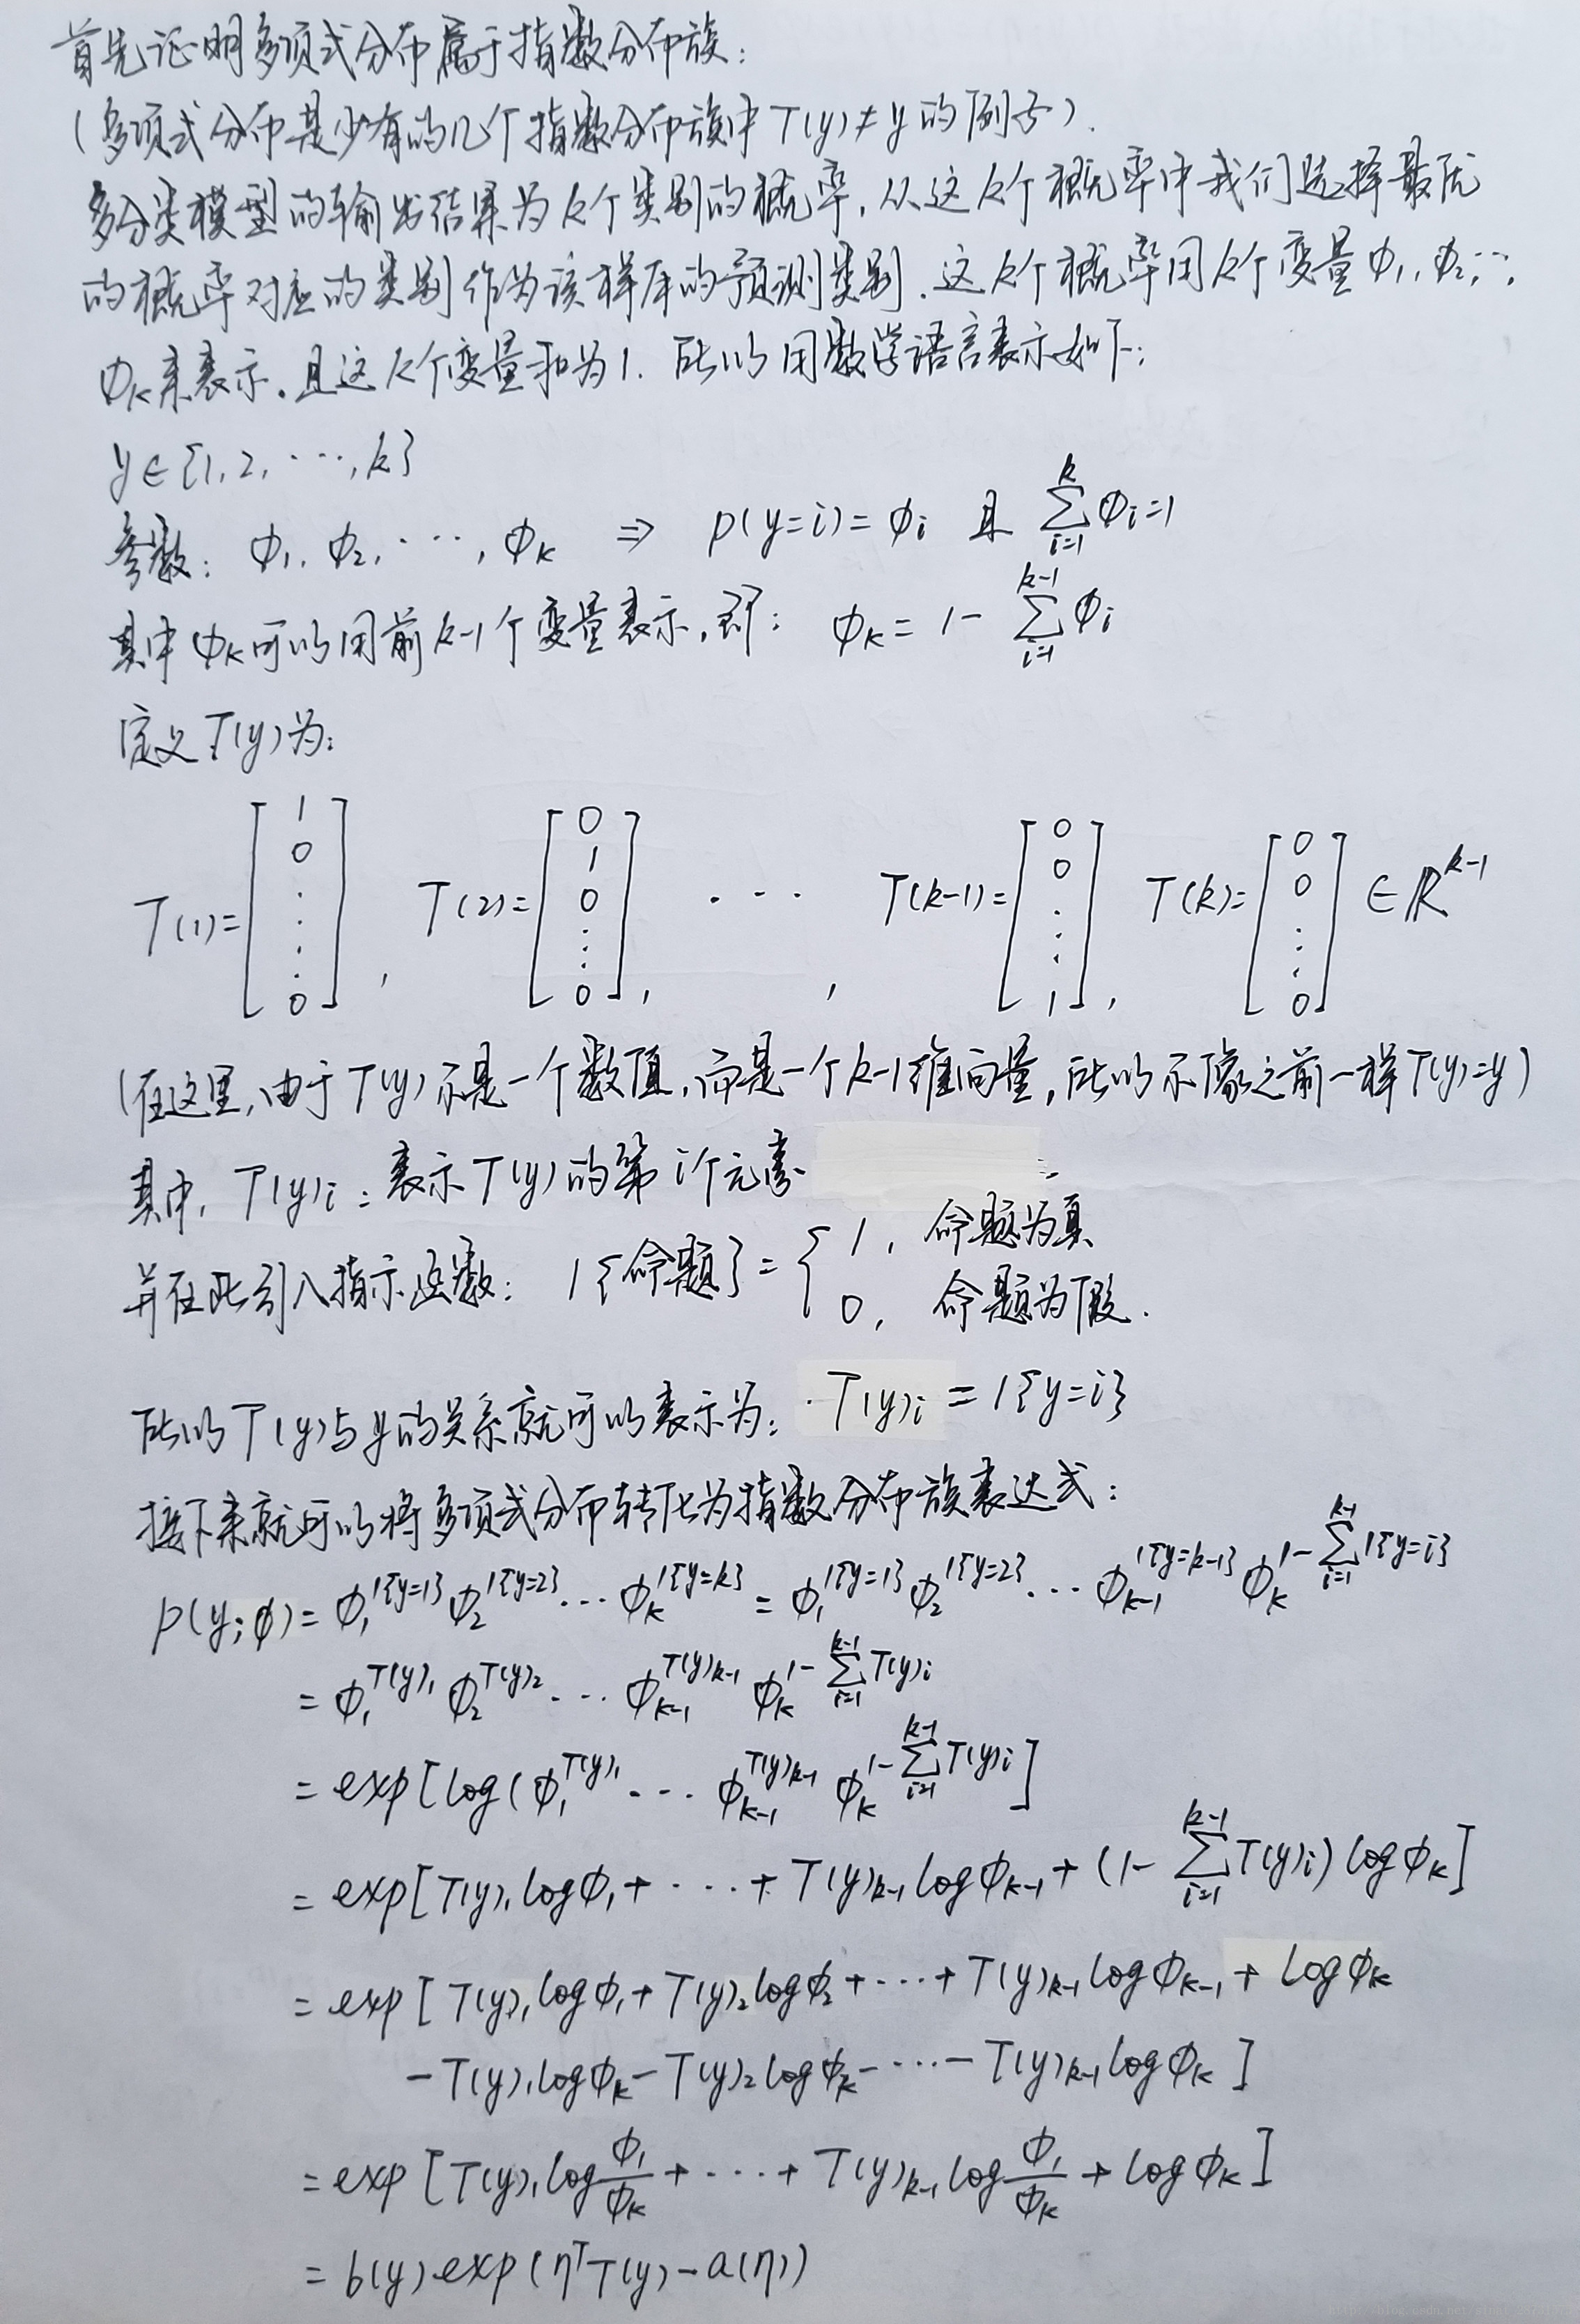 首先证明多项式分布属于指数分布族：
（多项式分布是少有的几个指数分布族中T(y)≠y的例子）.
多分类模型的输出结果为k个类别的概率，从这k个概率中我们选择最优
的概率对应的类别作为该样本的预测类别.这k个概率用k个变量φ₁,φ₂,…,
φₖ来表示.且这k个变量和为1.所以用数学语言表示如下：
y∈{1,2,…,k}
参数：φ₁,φ₂,…,φₖ ⇒ p(y=i)=φᵢ 且 ∑_{i=1}^{k} φᵢ=1
其中φₖ可以用前k-1个变量表示,即：φₖ=1-∑_{i=1}^{k-1} φᵢ
定义T(y)为：
T(1)=[1 0 ⋮ 0], T(2)=[0 1 0 ⋮ 0], …, T(k-1)=[0 0 ⋮ 1], T(k)=[0 0 ⋮ 0]∈ℝ^{k-1}
(在这里,由于T(y)不是一个数值,而是一个k-1维向量,所以不像之前一样T(y)=y)
其中,T(y)ᵢ：表示T(y)的第i个元素
并在此引入指示函数：1{命题}={1, 命题为真
0, 命题为假.
所以T(y)与y的关系就可以表示为：T(y)ᵢ=1{y=i}
接下来就可以将多项式分布转化为指数分布族表达式：
p(y;φ)=φ₁^{1{y=1}}φ₂^{1{y=2}}…φₖ^{1{y=k}}=φ₁^{1{y=1}}φ₂^{1{y=2}}…φ_{k-1}^{1{y=k-1}}φₖ^{1-∑_{i=1}^{k-1}1{y=i}}
=φ₁^{T(y)₁}φ₂^{T(y)₂}…φ_{k-1}^{T(y)_{k-1}}φₖ^{1-∑_{i=1}^{k-1}T(y)ᵢ}
=exp[log(φ₁^{T(y)₁}…φ_{k-1}^{T(y)_{k-1}}φₖ^{1-∑_{i=1}^{k-1}T(y)ᵢ}]
=exp[T(y)₁logφ₁+…+T(y)_{k-1}logφ_{k-1}+(1-∑_{i=1}^{k-1}T(y)ᵢ)logφₖ]
=exp[T(y)₁logφ₁+T(y)₂logφ₂+…+T(y)_{k-1}logφ_{k-1}+logφₖ
-T(y)₁logφₖ-T(y)₂logφₖ-…-T(y)_{k-1}logφₖ]
=exp[T(y)₁log(φ₁/φₖ)+…+T(y)_{k-1}log(φ₁/φₖ)+logφₖ]
=b(y)exp(ηᵀT(y)-a(η))